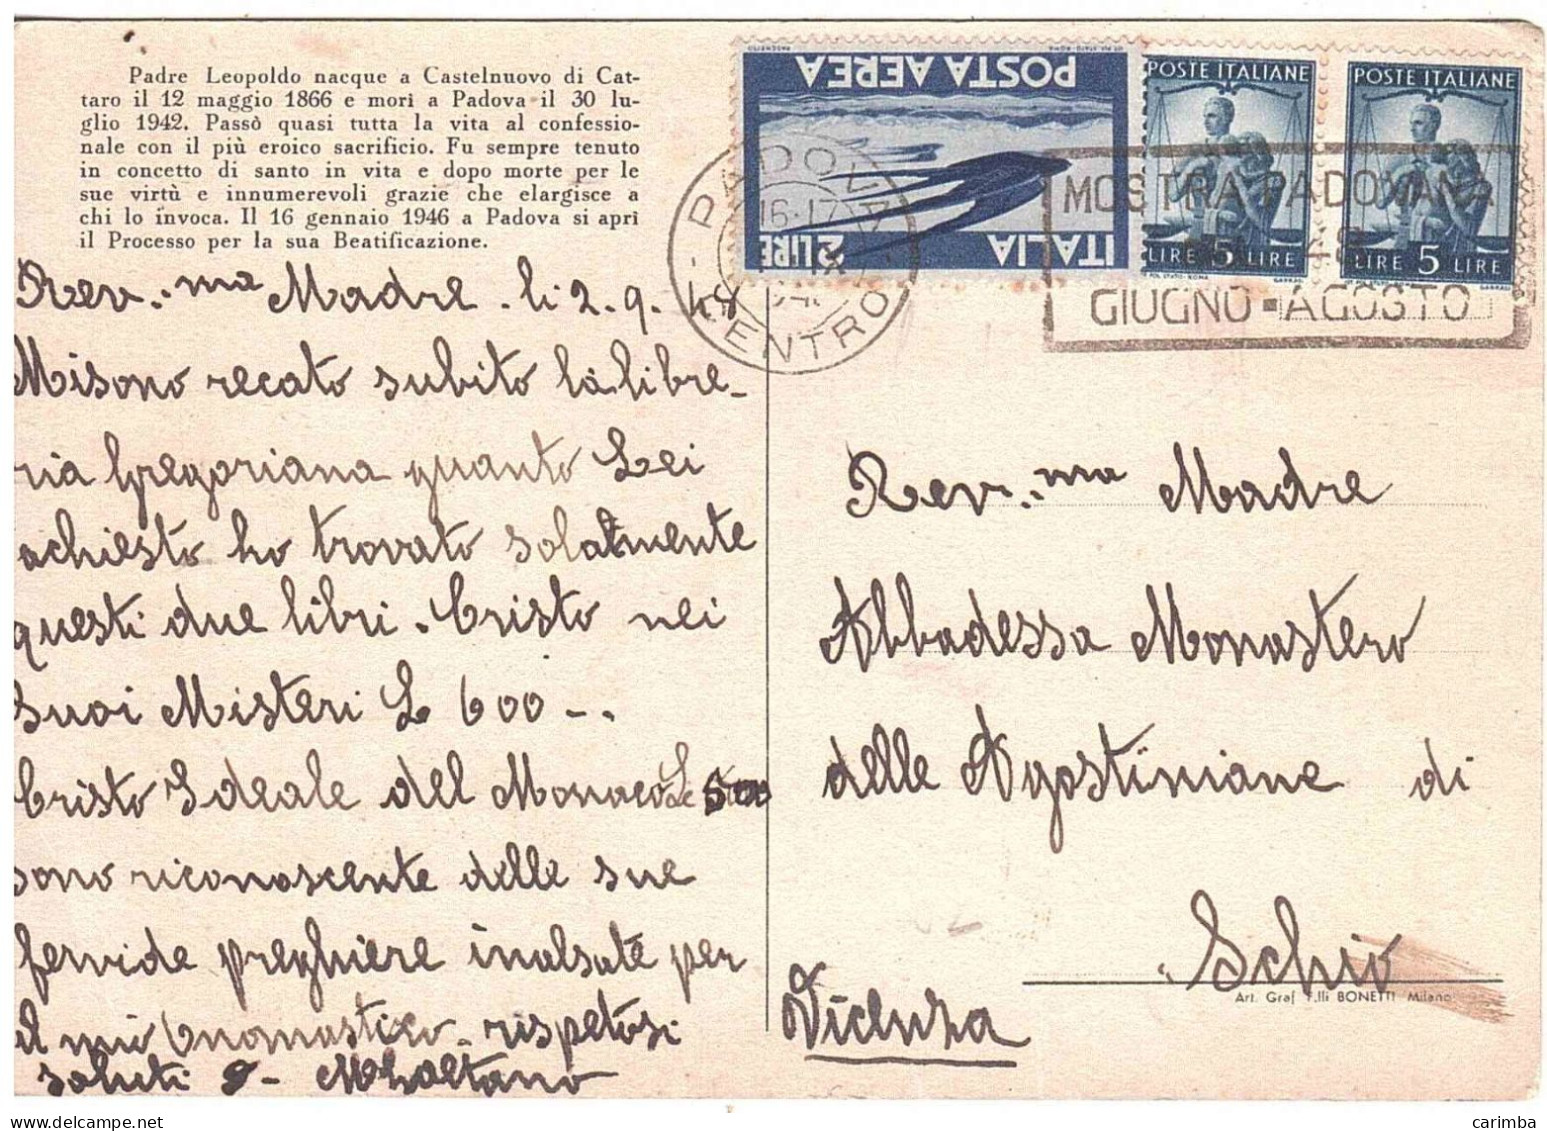 Padre Leopoldo nacque a Castelnuovo di Cat-
taro il 12 maggio 1866 e morì a Padova il 30 lu-
glio 1942. Passò quasi tutta la vita al confessio-
nale con il più eroico sacrificio. Fu sempre tenuto
in concetto di santo in vita e dopo morte per le
sue virtù e innumerevoli grazie che elargisce a
chi lo invoca. Il 16 gennaio 1946 a Padova si aprì
il Processo per la sua Beatificazione.
Rev.ma Madre . li 2. 9. 48
Misono recato subito la libre-
ria Gregoriana quanto Lei
achiesto ho trovato solatmente
questi due libri. Cristo nei
suoi Misteri L 600 -.
Cristo Ideale del Monaco L 500
sono riconoscente delle sue
fervide preghiere inalsate per
il mio onomastico. rispetosi
saluti
POSTA AEREA
ITALIA
2 LIRE
POSTE ITALIANE
LIRE 5 LIRE
POSTE ITALIANE
LIRE 5 LIRE
PADOVA
16-17
CENTRO
MOSTRA PADOVANA
GIUGNO - AGOSTO
Rev.ma Madre
Abbadessa Monastero
delle Agostiniane di
Schio
Vicenza
Art. Graf. F.lli BONETTI Milano
carimba.com